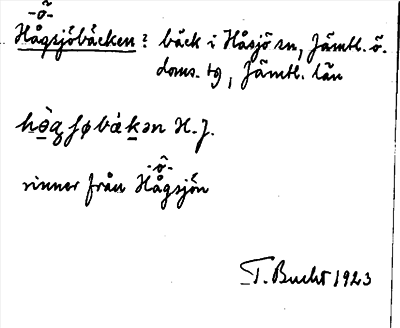 -ö-
Hågsjöbäcken: bäck i Håsjö sn, Jämtl. ö.
doms. tg, Jämtl. län
H. J.
-ö-
rinner från Hågsjön
T. Bucht 1923